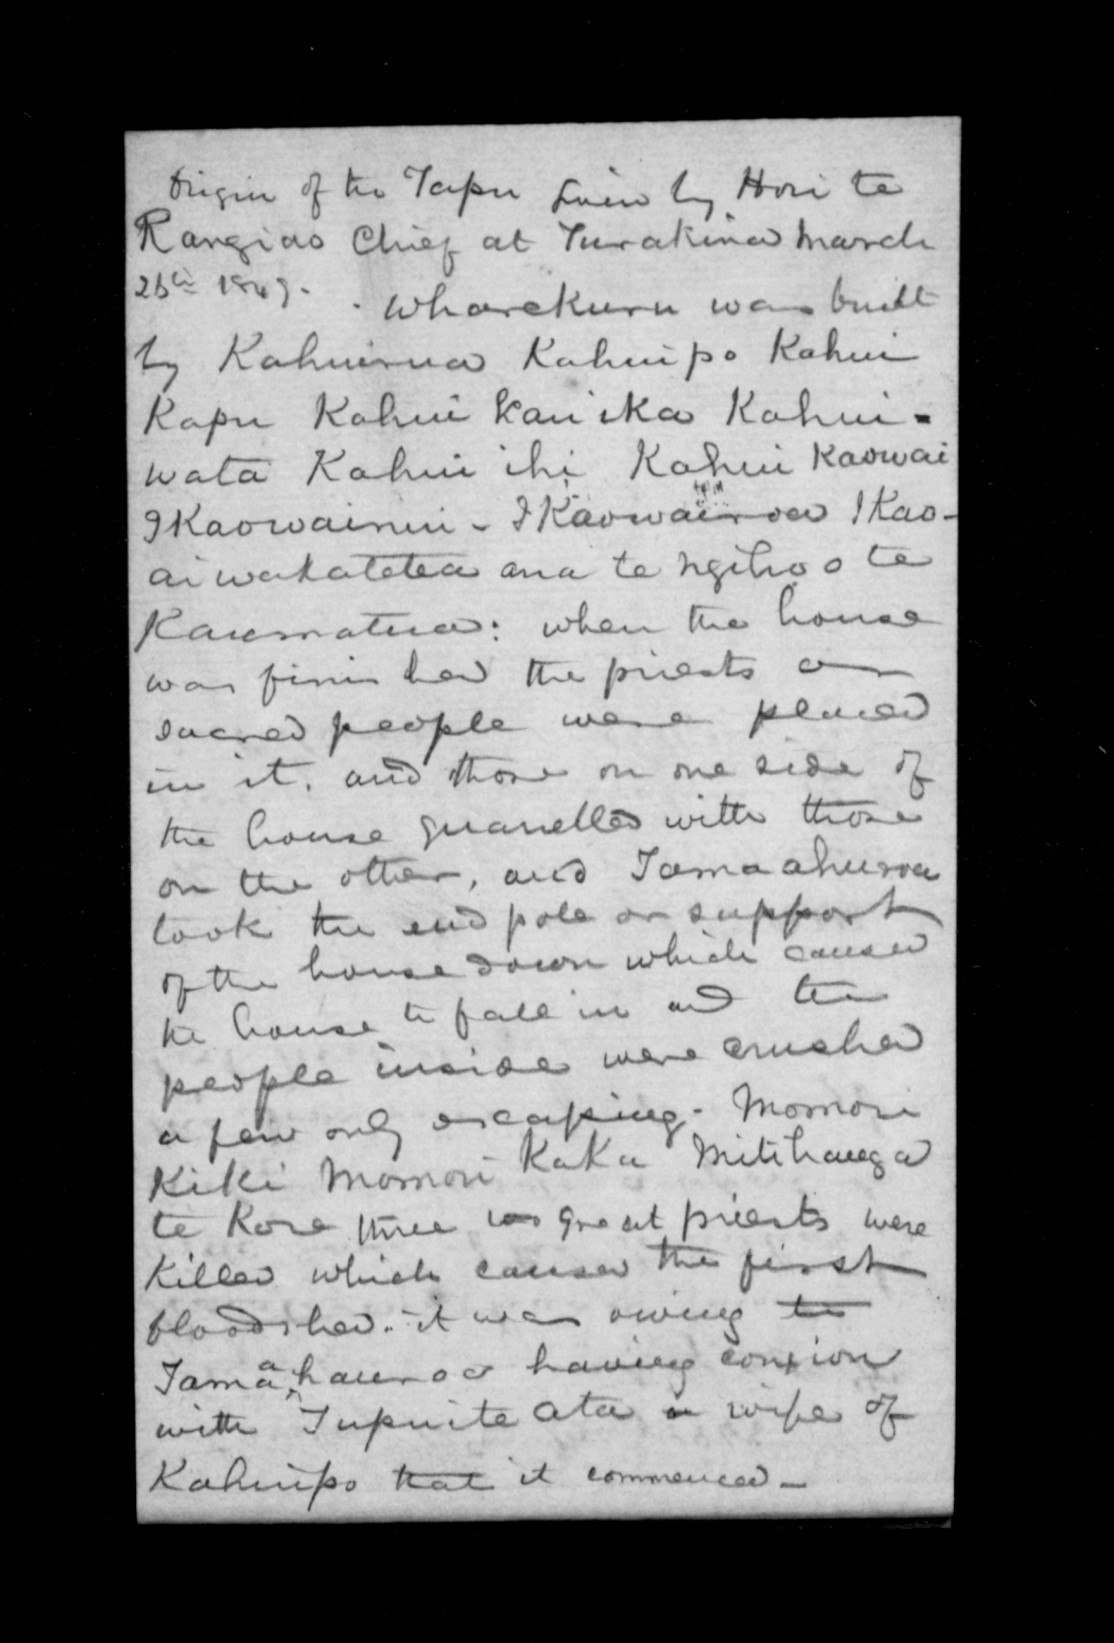 Origin of the Tapu given by Hori te
Rangiao Chief at Turakina March
26th 1849. Wharekura was built
by Kahuirua Kahuipo Kahui
Kapu Kahui kau ika Kahui-
wata Kahui ihi Kahui Kaowai
I Kaowainui - I Kaowairoa I Kao-
ai wakatetea ana te ngihoo te
Kaumatua: when the house
was finished the priests or
sacred people were placed
in it. and those on one side of
the house quarelled with those
on the other, and Tamaahuroa
took the end pole or support
of the house down which caused
the house to fall in and the
people inside were crushed
a few only escaping. Momori
Kiki Momori Kaka Mitihanga
te Kore three great priests were
killed which caused the first
bloodshed. it was owing to
Tamaahauroa having conxion
with Tupuite Ata a wife of
Kahuipo that it commenced -